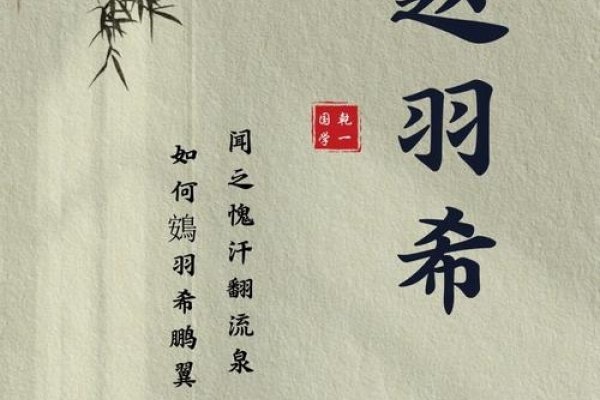 羽希
乾一
国学
闻之愧汗翻流泉
如何鴳羽希鹏翼